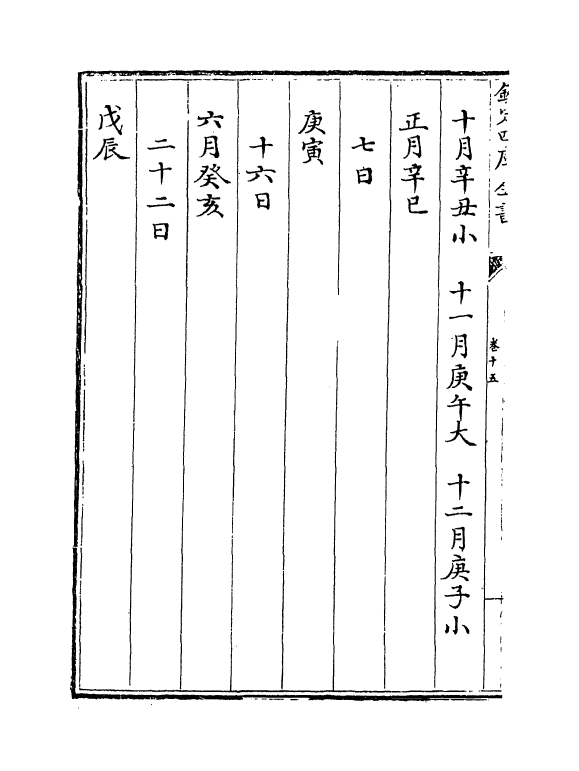 欽定四庫全書
卷十五
十月辛丑小　十一月庚午大　十二月庚子小
正月辛巳
七日
庚寅
十六日
六月癸亥
二十二日
戊辰